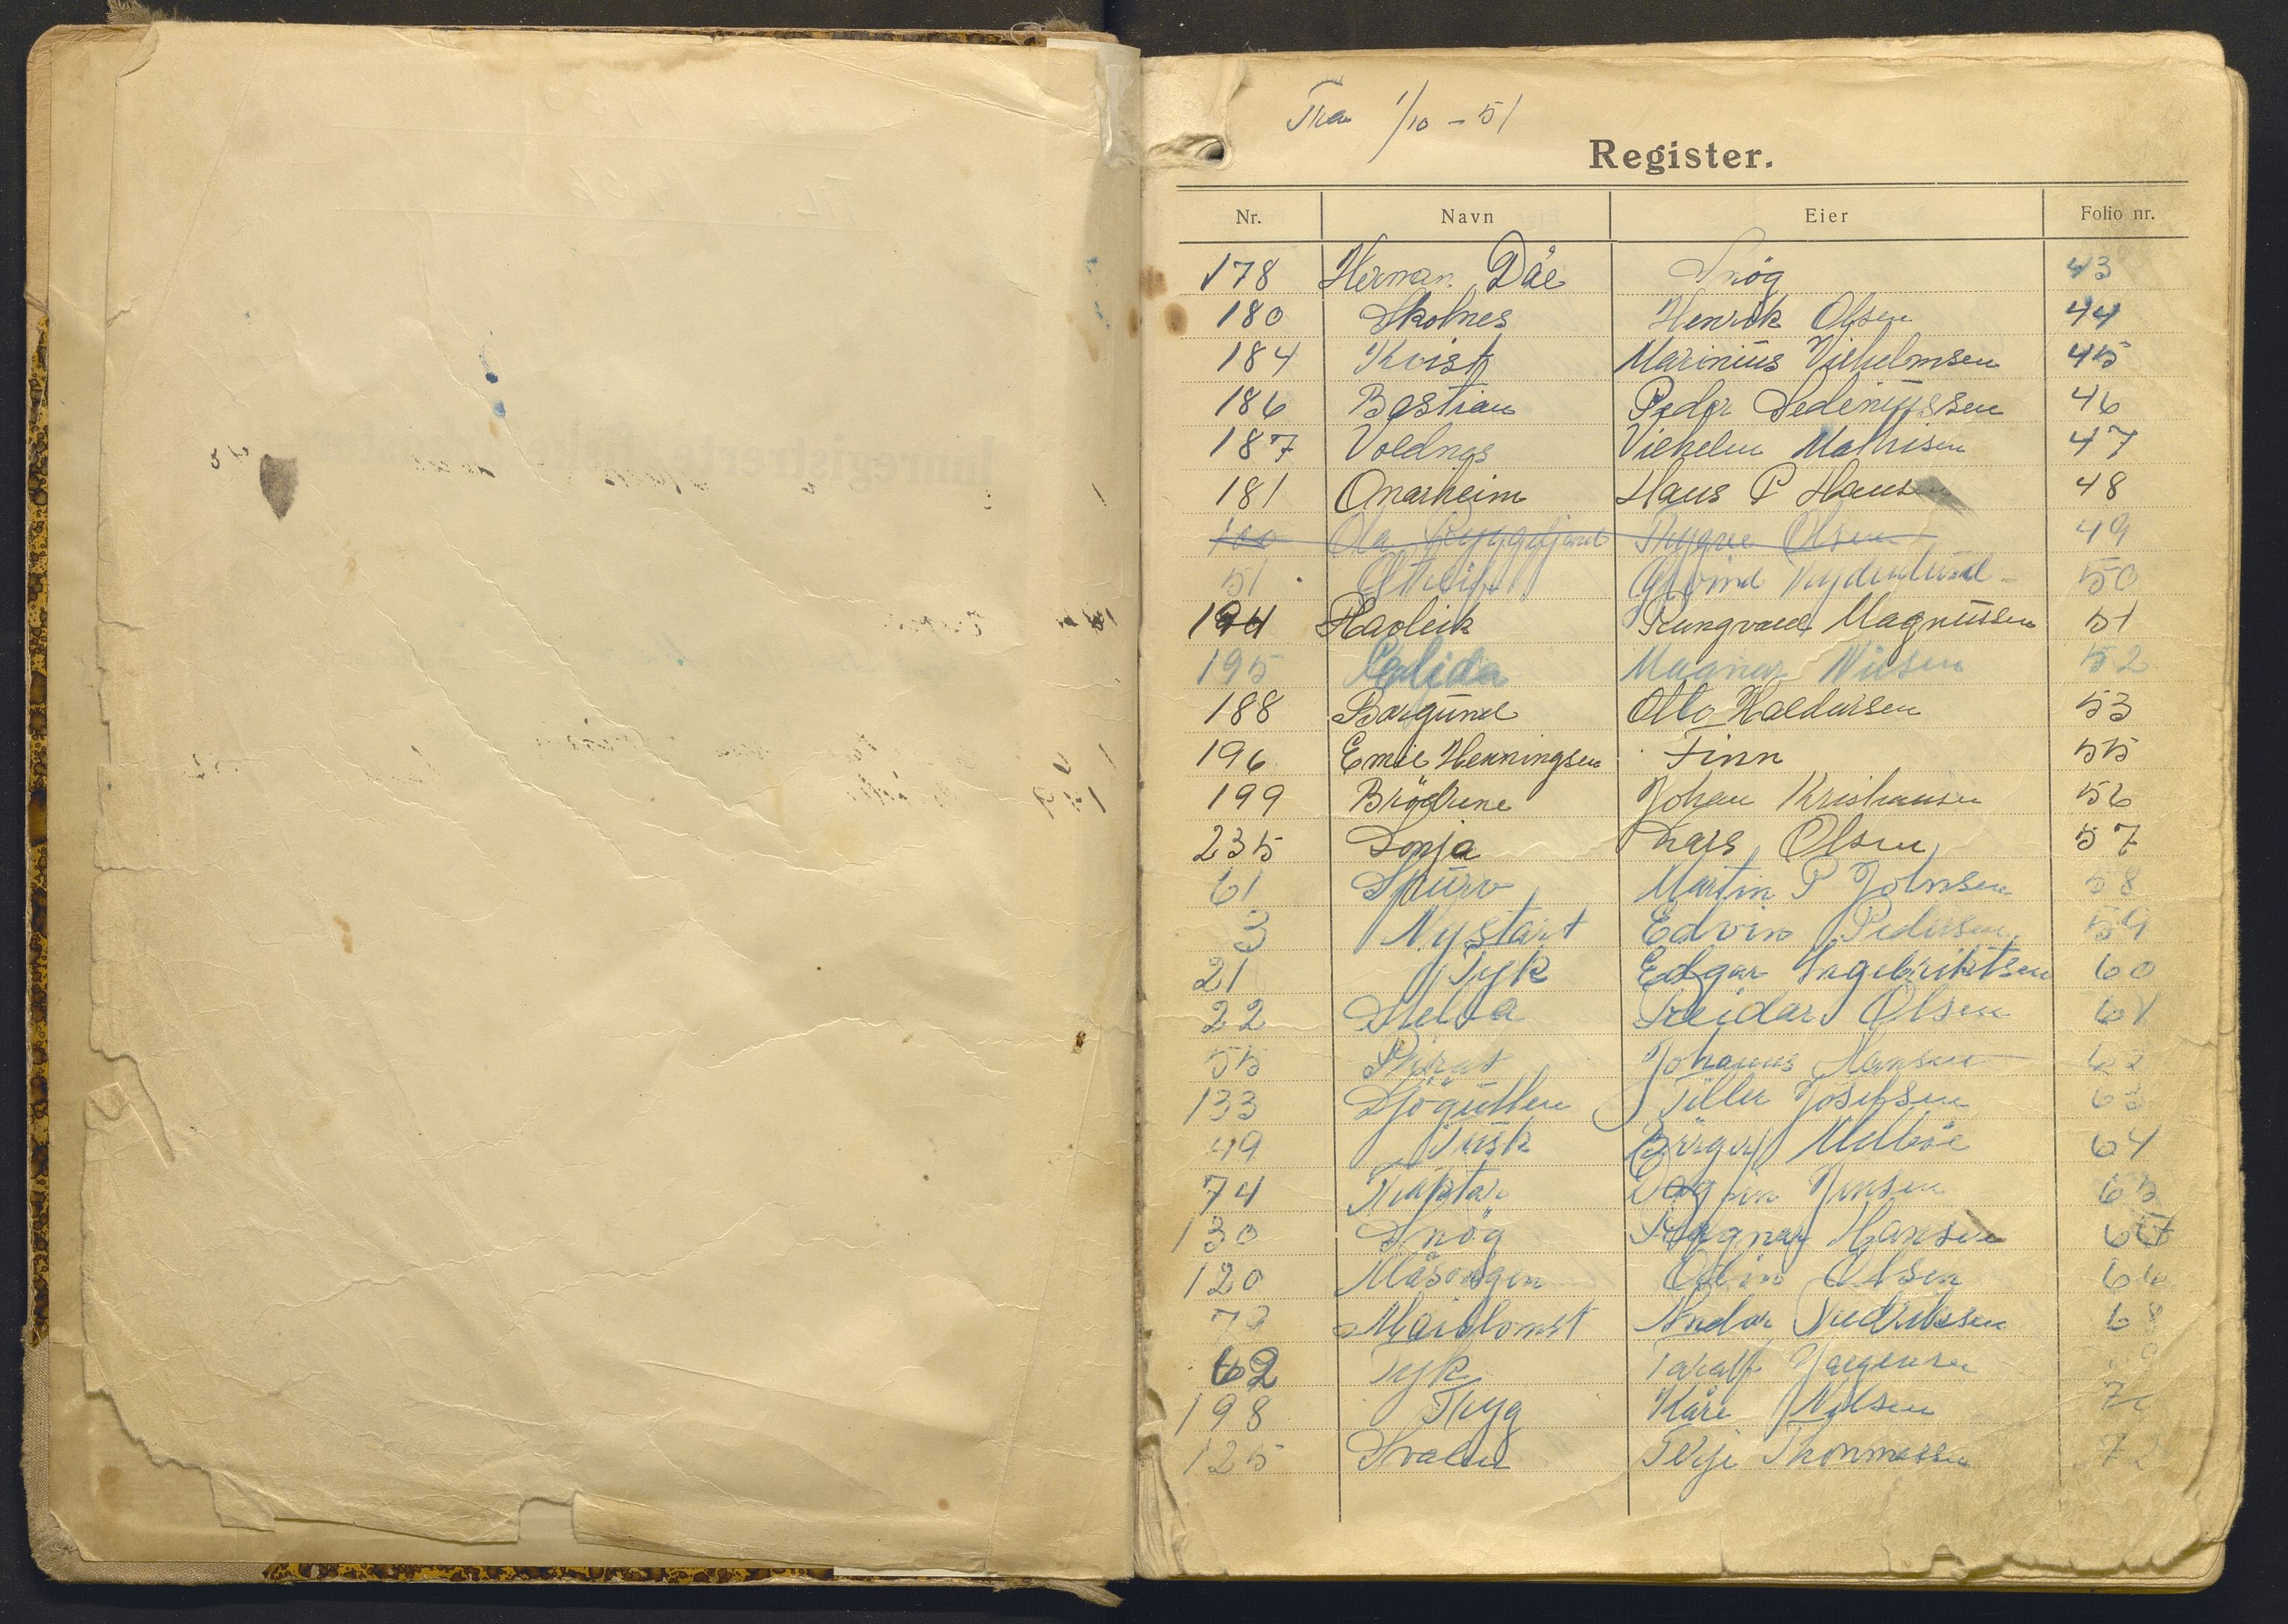 Fra 1/10 - 51
Register.
Nr. Navn Eier Folio nr.
178 Herman Dåe Snög 43
180 Skolnes Henrik Olsen 44
184 Kvist Marinius Vilhelmsen 45
186 Bastian Peder Sedeniussen 46
187 Voldnes Vilhelm Mathisen 47
181 Onarheim Hans P Hansen 48
100 Ola Ryggefjord Trygve Olsen 49
51 50
194 Havleik Magnussen 51
195 Magnar Nilsen 52
188 Borgund Otto Haldorsen 53
196 Emil Henningsen Finn 55
199 Brödrene Johan Kristiansen 56
235 Sonja Lars Olsen 57
61 Spurv Martin P Johnsen 58
3 Nystart Edvin Pedersen 59
21 Tyk Edgar Ingebriktsen 60
22 Melva Reidar Olsen 61
55 Pirat Johannes Hansen 62
133 Sjögutten Josefsen 63
49 Tusk Birger Melböe 64
74 Dagfin Jensen 65
130 Snög Ragnar Hansen 67
120 Måsongen Odin Olsen 66
Maiblomst Fredriksen 68
62 Tyk Toralf Jörgensen
198 Tryg Kåre Nilsen
125 Svalen Terje Thommassen 72